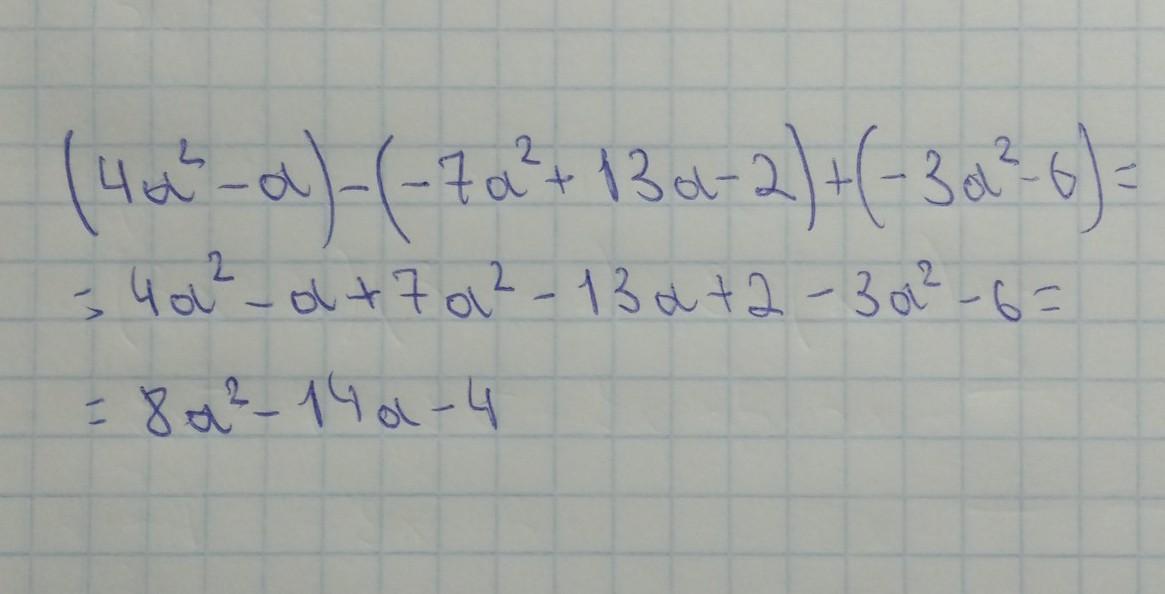 (4a² - a) - (-7a² + 13a - 2) + (-3a² - 6) =
= 4a² - a + 7a² - 13a + 2 - 3a² - 6 =
= 8a² - 14a - 4